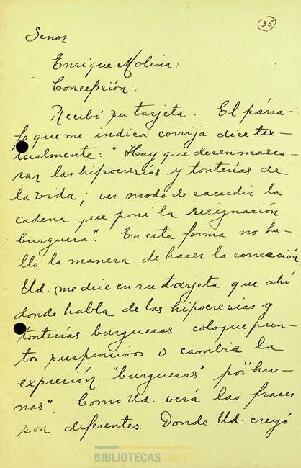 35
Señor
Enrique Molina.
Concepción.
Recibí su tarjeta. El párra-
fo que me indica corrija dice tex-
tualmente: "Hay que desenmasca-
rar las hipocresías y tonterías de
la vida; ver modo de sacudir la
cadena que pone la resignación
burguesa". En esta forma no ha-
llo la manera de hacer la corrección
Ud. me dice en su tarjeta que ahí
donde habla de las hipocresías y
tonterías burguesas coloque pun-
tos suspensivos o cambie la
expresión "burguesas" por "huma-
nas". Como Ud. verá las frases
son diferentes. Donde Ud. creyó
BIBLIOTECAS